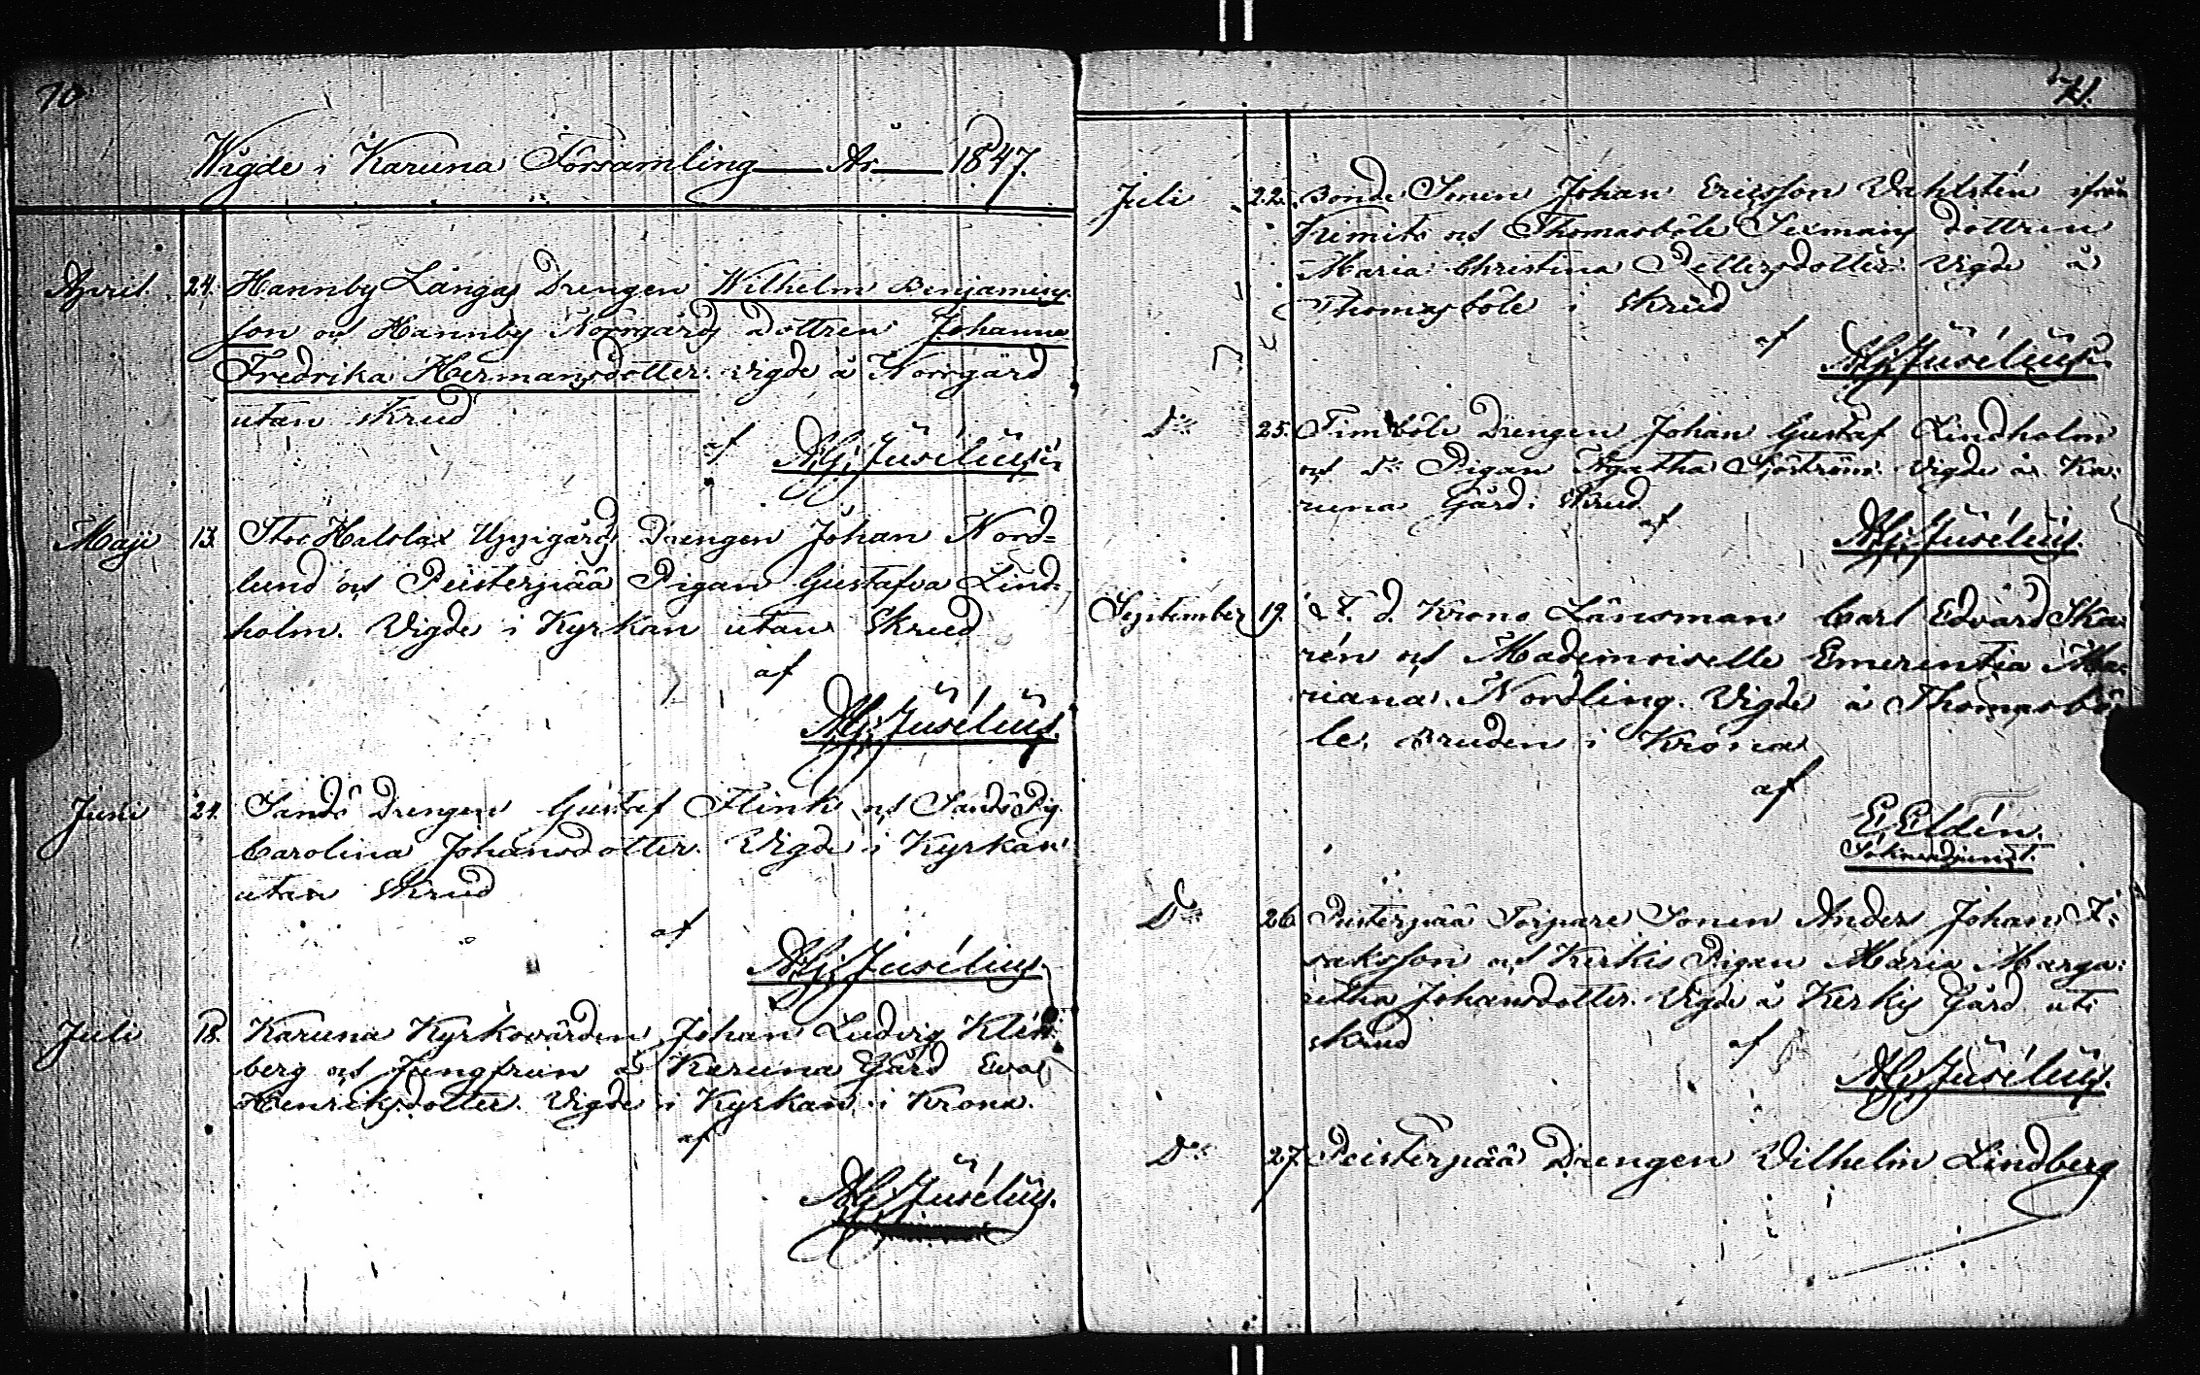 70
Wigde i Karuna Församling — År — 1847.
April 24. Hannby Långas Drengen Wilhelm Benjamins
son och Hannby Norrgårds dottren Johanna
Fredrika Hermansdotter. Vigde å Norrgård
utan skrud
af
A.G. Jusélius
Maji 13. Stor Halslax Uppigårds Drengen Johan Nord=
lund och Peisterpää Pigan Gustafva Lind:
holm. Vigde i Kyrkan utan Skrud
af
A.G. Jusélius.
Juni 24. Sandö Drengen Gustaf Flink och Sandö Pig
Carolina Johansdotter. Vigde i Kyrkan
utan skrud
af
A.G. Jusélius.
Juli 18. Karuna Kyrkovärden Johan Ludvig Klin
berg och Jungfrun å Karuna Gård Eva
Henriksdotter. Vigde i Kyrkan i Krona.
af
A.G. Jusélius.
71.
Juli 22. Bonde Sonen Johan Ericsson Vahlstén ifrån
Kimito och Thomasböle Sexmans dottren
Maria Christina Pettersdotter Vigde å
Thomasböle i Skrud
af
A.G. Jusélius
Do 25. Fimböle Drengen Johan Gustaf Lindholm
och do Pigan Agatha Sjöström. Vigde å Ka:
runa Gård i Skrud
af
A.G. Jusélius.
September 19. T. d. Krono Länsman Carl Edvard Ska:
rén och Mademoiselle Emerentia Ma:
riana Nordling. Vigde å Thomasbö
le, Bruden i Krona
af
E. Eldén.
Sokneadjunct.
Do 26 Peisterpää Torpare Sonen Anders Johan I:
saksson och Kerkis Pigan Maria Marga:
retha Johansdotter. Vigde å Kerkis Gård uti
skrud
af
A.G. Jusélius.
Do 27. Peisterpää Drengen Vilhelm Lindberg